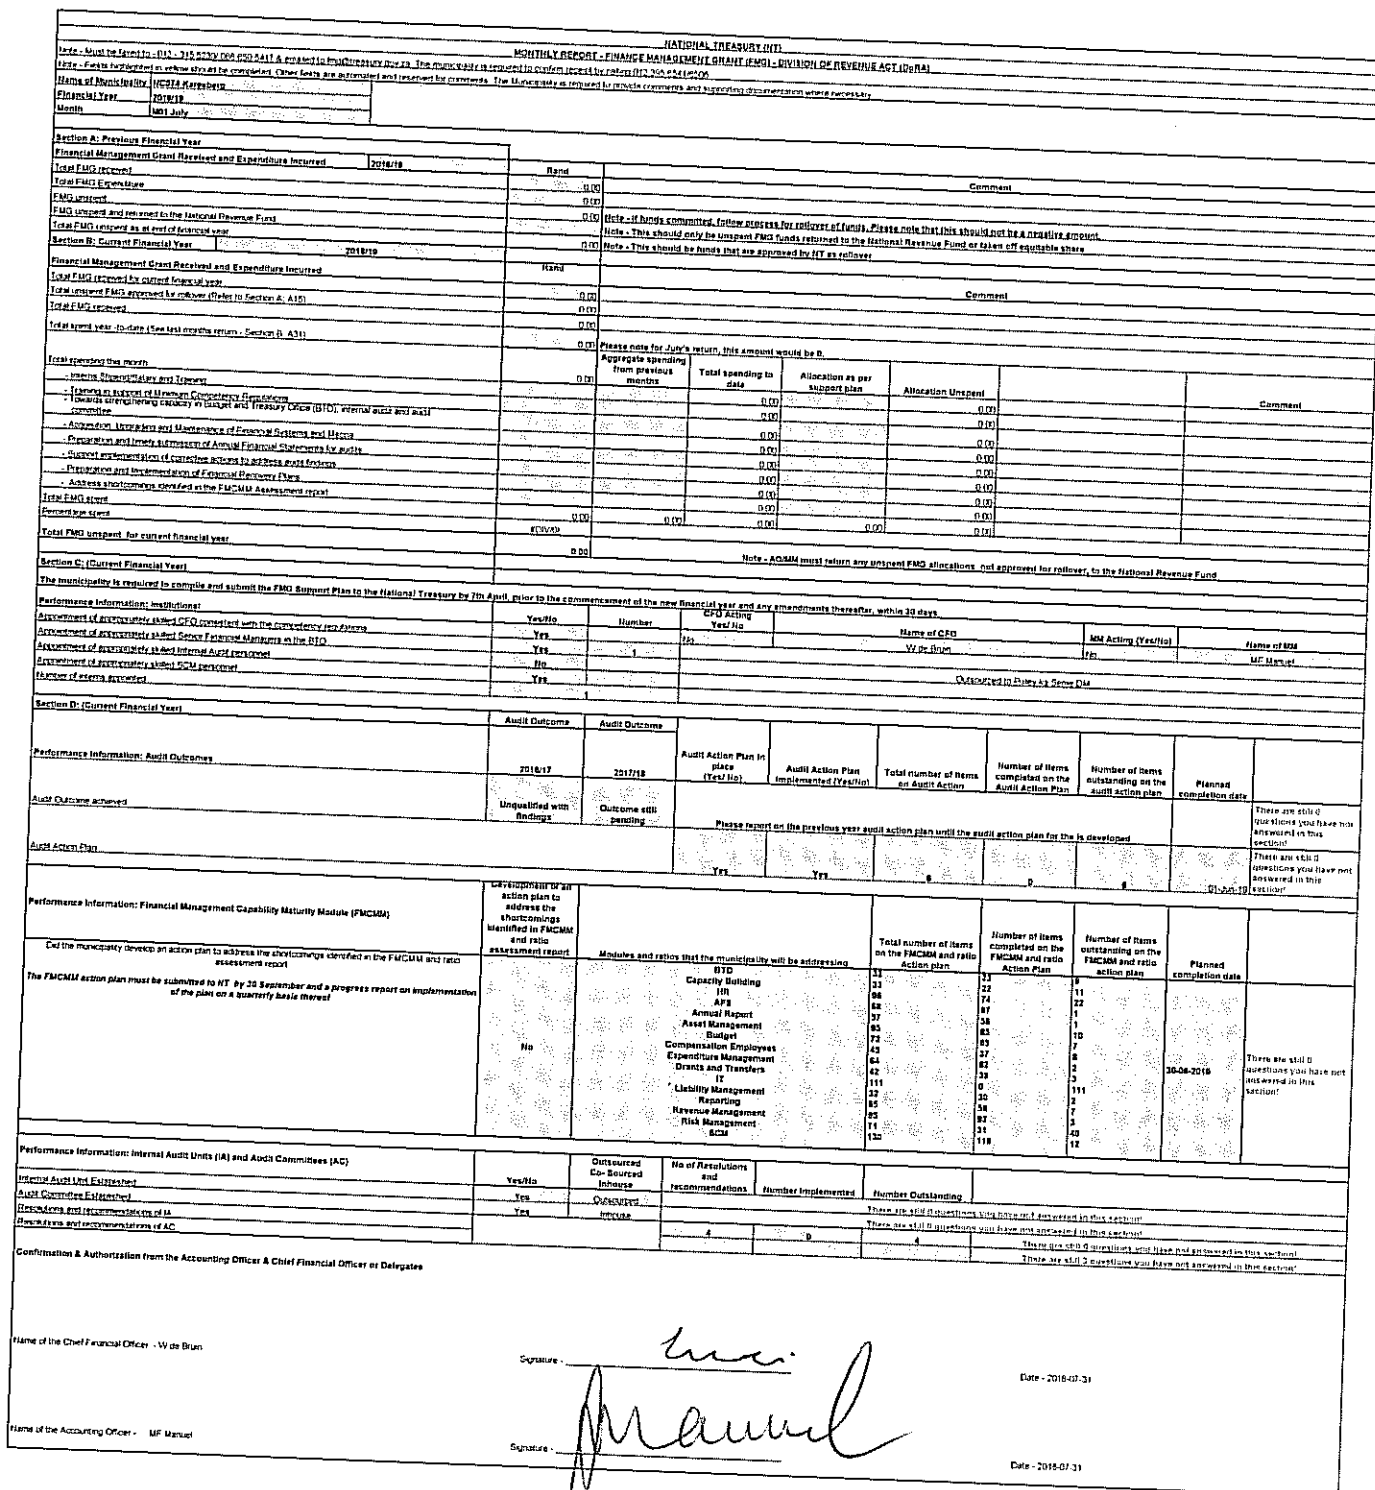 NATIONAL TREASURY (NT)
MONTHLY REPORT - FINANCE MANAGEMENT GRANT (FMG) - DIVISION OF REVENUE ACT (DoRA)
Note - Fields highlighted in yellow should be completed. Other fields are automated and reserved for comments. The Municipality is required to provide comments and supporting documentation where necessary
Name of Municipality NC074 Kareeberg
Financial Year 2018/19
Month M01 July
Section A: Previous Financial Year
Financial Management Grant Received and Expenditure Incurred Rand Comment
Total FMG received 0.00
Total FMG Expenditure 0.00
FMG unspent 0.00 Note - If funds committed, follow process for rollover of funds. Please note that this should not be a negative amount.
FMG unspent and returned to the National Revenue Fund Note - This should only be unspent FMG funds returned to the National Revenue Fund or taken off equitable share
Total FMG unspent as at end of financial year 0.00 Note - This should be funds that are approved by NT as rollover
Section B: Current Financial Year 2018/19
Financial Management Grant Received and Expenditure Incurred Rand Comment
Total FMG received for current financial year 0.00
Total unspent FMG approved for rollover (Refer to Section A: A15) 0.00
Total FMG received 0.00
Total spent year-to-date (See last months return - Section B: A31) 0.00 Please note for July's return, this amount would be 0.
Total spending this month 0.00 Aggregate spending from previous months Total spending to date Allocation as per support plan Allocation Unspent Comment
- Interns Stipend/Salary and Training 0.00 0.00
- Training in support of Minimum Competency Regulations 0.00 0.00
- Towards strengthening capacity in Budget and Treasury Office (BTO), internal audit and audit committee 0.00 0.00
- Acquisition, Upgrading and Maintenance of Financial Systems and Mscoa 0.00 0.00
- Preparation and timely submission of Annual Financial Statements for audits 0.00 0.00
- Support implementation of corrective actions to address audit findings 0.00 0.00
- Preparation and Implementation of Financial Recovery Plans 0.00 0.00
- Address shortcomings identified in the FMCMM Assessment report 0.00 0.00
Total FMG spent 0.00 0.00 0.00 0.00 0.00
Percentage spent #DIV/0!
Total FMG unspent for current financial year 0.00 Note - AO/MM must return any unspent FMG allocations not approved for rollover, to the National Revenue Fund
Section C: (Current Financial Year)
The municipality is required to compile and submit the FMG Support Plan to the National Treasury by 7th April, prior to the commencement of the new financial year and any amendments thereafter, within 30 days
Performance Information: Institutional Yes/No Number CFO Acting Yes/ No Name of CFO MM Acting (Yes/No) Name of MM
Appointment of appropriately skilled CFO consistent with the competency regulations Yes No W de Bruin No MF Manuel
Appointment of appropriately skilled Senior Financial Managers in the BTO Yes 1
Appointment of appropriately skilled Internal Audit personnel No Outsourced to Pixley ka Seme DM
Appointment of appropriately skilled SCM personnel Yes
Number of interns appointed 1
Section D: (Current Financial Year)
Performance Information: Audit Outcomes Audit Outcome 2016/17 Audit Outcome 2017/18 Audit Action Plan in place (Yes/ No) Audit Action Plan Implemented (Yes/No) Total number of Items on Audit Action Number of Items completed on the Audit Action Plan Number of Items outstanding on the audit action plan Planned completion date
Audit Outcome achieved Unqualified with findings Outcome still pending Please report on the previous year audit action plan until the audit action plan for the is developed There are still 0 questions you have not answered in this section!
Audit Action Plan Yes Yes 6 0 6 There are still 0 questions you have not answered in this section!
Performance Information: Financial Management Capability Maturity Module (FMCMM) Development of an action plan to address the shortcomings identified in FMCMM and ratio assessment report Modules and ratios that the municipality will be addressing Total number of items on the FMCMM and ratio Action plan Number of items completed on the FMCMM and ratio Action Plan Number of items outstanding on the FMCMM and ratio action plan Planned completion date
Did the municipality develop an action plan to address the shortcomings identified in the FMCMM and ratio assessment report
The FMCMM action plan must be submitted to NT by 30 September and a progress report on implementation of the plan on a quarterly basis thereof
No
BTO
Capacity Building 33 22 11
HR 96 74 22
AFS
Annual Report
Asset Management
Budget
Compensation Employees
Expenditure Management
Grants and Transfers
IT 111 0 111
Liability Management 32 30 2
Reporting
Revenue Management
Risk Management 71 31 40
SCM 130 118 12
There are still 0 questions you have not answered in this section!
Performance Information: Internal Audit Units (IA) and Audit Committees (AC) Yes/No Outsourced Co- Sourced Inhouse No of Resolutions and recommendations Number Implemented Number Outstanding
Internal Audit Unit Established Yes Outsourced There are still 0 questions you have not answered in this section!
Audit Committee Established Yes Inhouse There are still 0 questions you have not answered in this section!
Resolutions and recommendations of IA 4 0 4 There are still 0 questions you have not answered in this section!
Resolutions and recommendations of AC There are still 0 questions you have not answered in this section!
Confirmation & Authorization from the Accounting Officer & Chief Financial Officer or Delegates
Name of the Chief Financial Officer - W de Bruin Signature - Date - 2018-07-31
Name of the Accounting Officer - MF Manuel Signature - Manuel Date - 2018-07-31